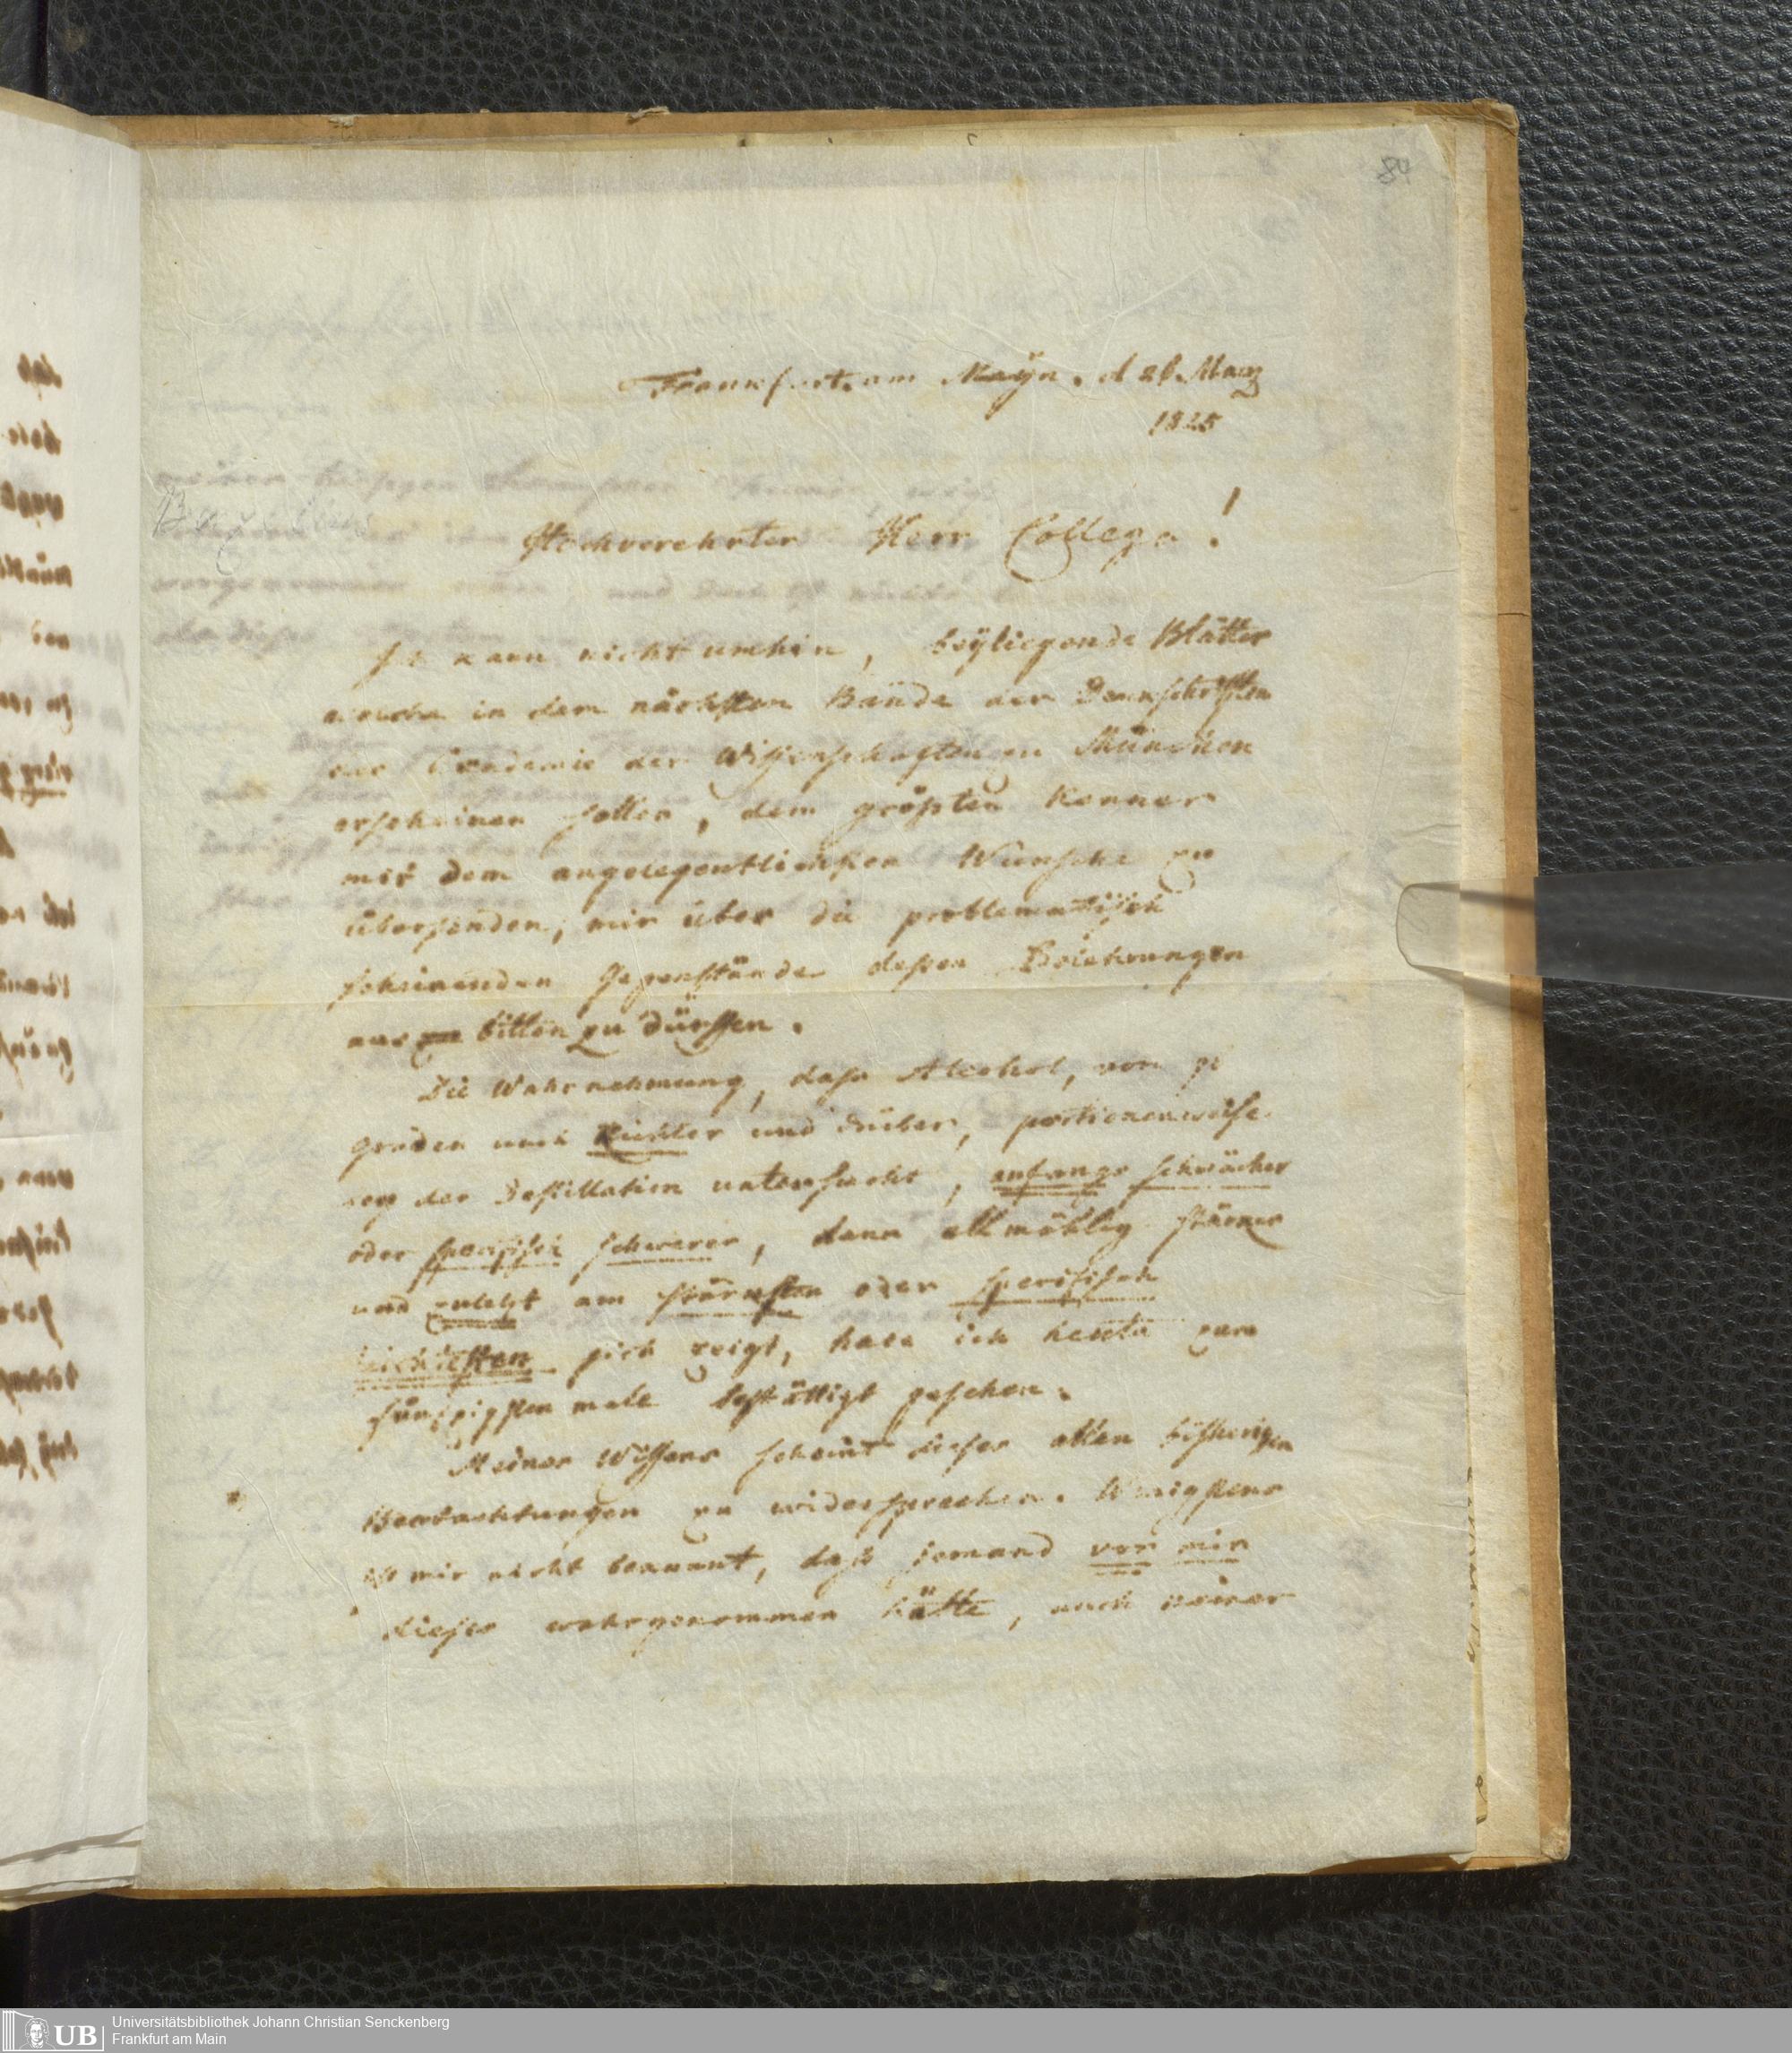 84
Frankfurt. am Mayn. d 28. Marz
1825
Berzelius
Hochverehrter Herr Collega!
Ich kann nicht umhin, beyliegende Blätter
welche in dem nächsten Bande der Denkschriften
der Academie der Wissenschaften zu München
erscheinen sollen, dem größten Kenner
mit dem angelegentlichsten Wunsche zu
übersenden, mir über die problematisch
scheinenden Gegenstände dessen Belehrungen
aus bitten zu dürfen.
Die Wahrnehmung, dass Alcohol, von
graden nach Richter und drüber, portionenweise
bey der Destillation untersucht, anfangs schwächer
oder specifisch schwerer, dann allmählig stärker
und zuletzt am stärksten oder specifisch
leichtesten sich zeigt, habe ich heute zum
fünfzigsten male bestättigt gesehen.
Meines Wissens scheint dieses allen bisherigen
Beobachtungen zu widersprechen. Wenigstens
ist mir nicht bekannt, daß jemand vor mir
dieses wahrgenommen hätte, auch keiner
UB
Universitätsbibliothek Johann Christian Senckenberg
Frankfurt am Main